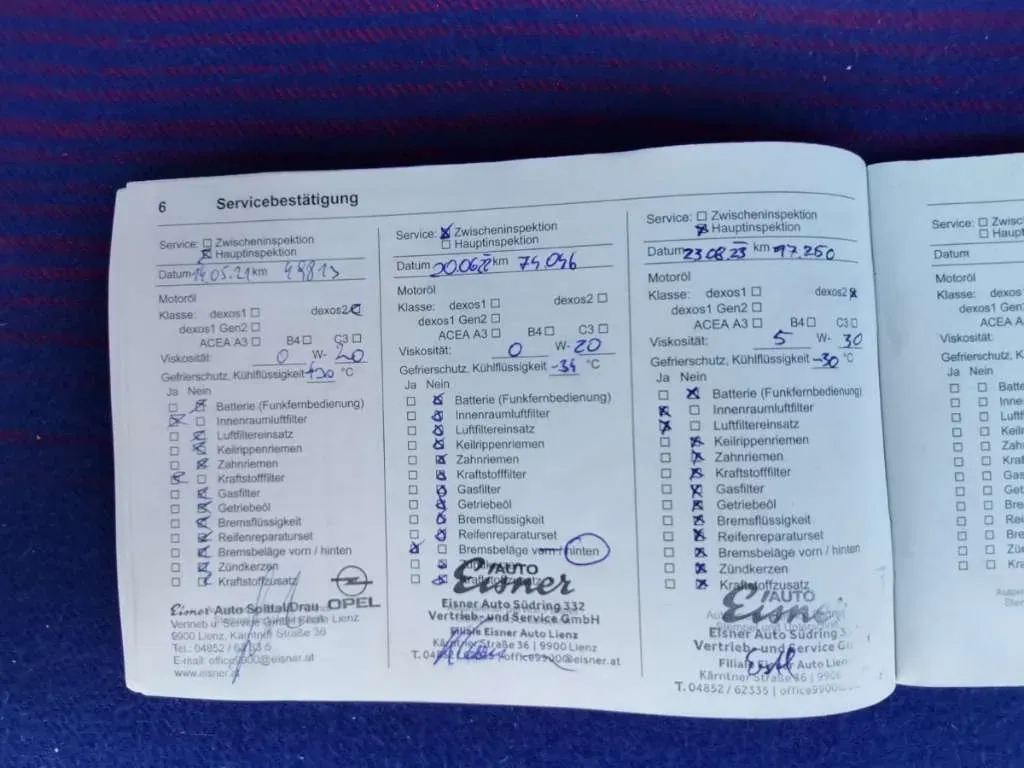 6 Servicebestätigung
Service: Zwischeninspektion
Hauptinspektion
Datum 14.05.21 km 49813
Motoröl
Klasse: dexos1 dexos2
dexos1 Gen2
ACEA A3 B4 C3
Viskosität: 0 W- 20
Gefrierschutz, Kühlflüssigkeit °C
Ja Nein
Batterie (Funkfernbedienung)
Innenraumluftfilter
Luftfiltereinsatz
Keilrippenriemen
Zahnriemen
Kraftstofffilter
Gasfilter
Getriebeöl
Bremsflüssigkeit
Reifenreparaturset
Bremsbeläge vorn / hinten
Zündkerzen
Kraftstoffzusatz
Eisner Auto Spittal/Drau OPEL
Vertrieb u. Service Lienz
9900 Lienz, Kärntner Straße 36
Tel.: 04852 /
E-mail: office9900@eisner.at
www.eisner.at
Service: Zwischeninspektion
Hauptinspektion
Datum 20.06.22 km 74.046
Motoröl
Klasse: dexos1 dexos2
dexos1 Gen2
ACEA A3 B4 C3
Viskosität: 0 W- 20
Gefrierschutz, Kühlflüssigkeit -34 °C
Ja Nein
Batterie (Funkfernbedienung)
Innenraumluftfilter
Luftfiltereinsatz
Keilrippenriemen
Zahnriemen
Kraftstofffilter
Gasfilter
Getriebeöl
Bremsflüssigkeit
Reifenreparaturset
Bremsbeläge vorn / hinten
AUTO
Eisner
Eisner Auto Südring 332
Vertrieb- und Service GmbH
Filiale Eisner Auto Lienz
Kärntner Straße 36 | 9900 Lienz
office9900@eisner.at
Service: Zwischeninspektion
Hauptinspektion
Datum 23.08.23 km 97.250
Motoröl
Klasse: dexos1 dexos2
dexos1 Gen2
ACEA A3 B4 C3
Viskosität: 5 W- 30
Gefrierschutz, Kühlflüssigkeit -30 °C
Ja Nein
Batterie (Funkfernbedienung)
Innenraumluftfilter
Luftfiltereinsatz
Keilrippenriemen
Zahnriemen
Kraftstofffilter
Gasfilter
Getriebeöl
Bremsflüssigkeit
Reifenreparaturset
Bremsbeläge vorn / hinten
Zündkerzen
Kraftstoffzusatz
AUTO
Eisner
Eisner Auto Südring 3
Vertrieb- und Service G
Filiale Eisner Auto Lien
Kärntner Straße 36 | 990
T. 04852 / 62335 | office9900
Service: Zwisch
Haupti
Datum
Motoröl
Klasse: dexos1
dexos1 Gen2
ACEA A3
Viskosität:
Gefrierschutz, Kühlfl
Ja Nein
Batterie
Innenr
Luftfil
Keilri
Zahn
Kraft
Gasf
Getr
Bre
Rei
Bre
Zü
Kr